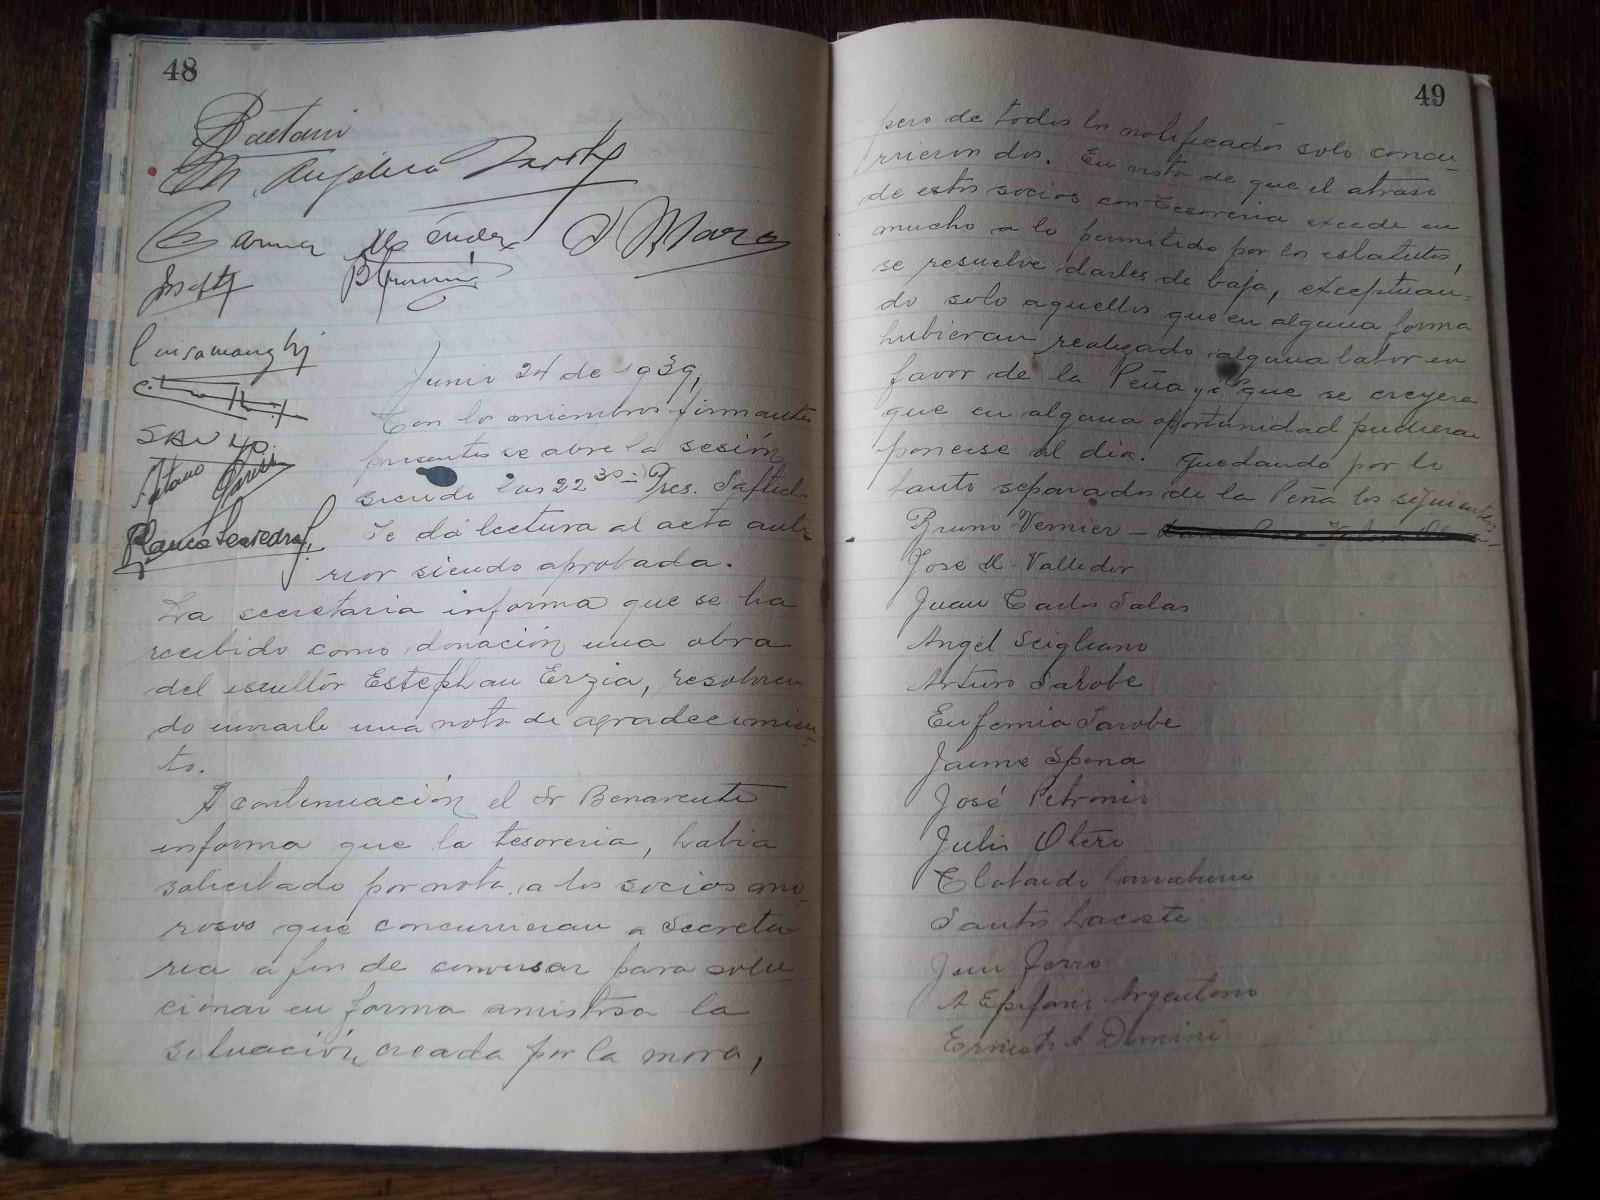 48
Gaetani
M. Angélica
Carmen Méndez D Mazo
Junio 24 de 1939,
Con los miembros firmantes
presentes se abre la sesión
siendo las 22 30 = Pres.
Se dá lectura al acta ante-
rior siendo aprobada.
La secretaria informa que se ha
recibido como donación una obra
del escultor Estephan Erzia, resolvien
do enviarle una nota de agradecimien-
to.
A continuación el Sr Benavente
informa que la tesoreria, habia
solicitado por nota, a los socios mo-
rosos que concurrieran a Secreta
ria a fin de conversar para solu-
cionar en forma amistosa la
situación, creada por la mora,
49
pero de todos los notificados solo concu-
rrieron dos. En vista de que el atraso
de estos socios con Tesoreria excede en
mucho a lo permitido por los estatutos,
se resuelve darles de baja, exceptuan=
do solo aquellos que en alguna forma
hubieran realizado alguna labor en
favor de la Peña y á que se creyera
que en alguna oportunidad pudieran
ponerse al dia. Quedando por lo
tanto separados de la Peña los siguientes
Bruno Vernier –
José M. Valledor
Juan Carlos Salas
Angel Scigliano
Arturo Sarobe
Eufemia Sarobe
Jaime Spena
José Petronio
Julio Otero
Clotardo Larraburu
Santos Lacoste
Juan Ferro
A Epifanio Argentono
Ernesto A Domini